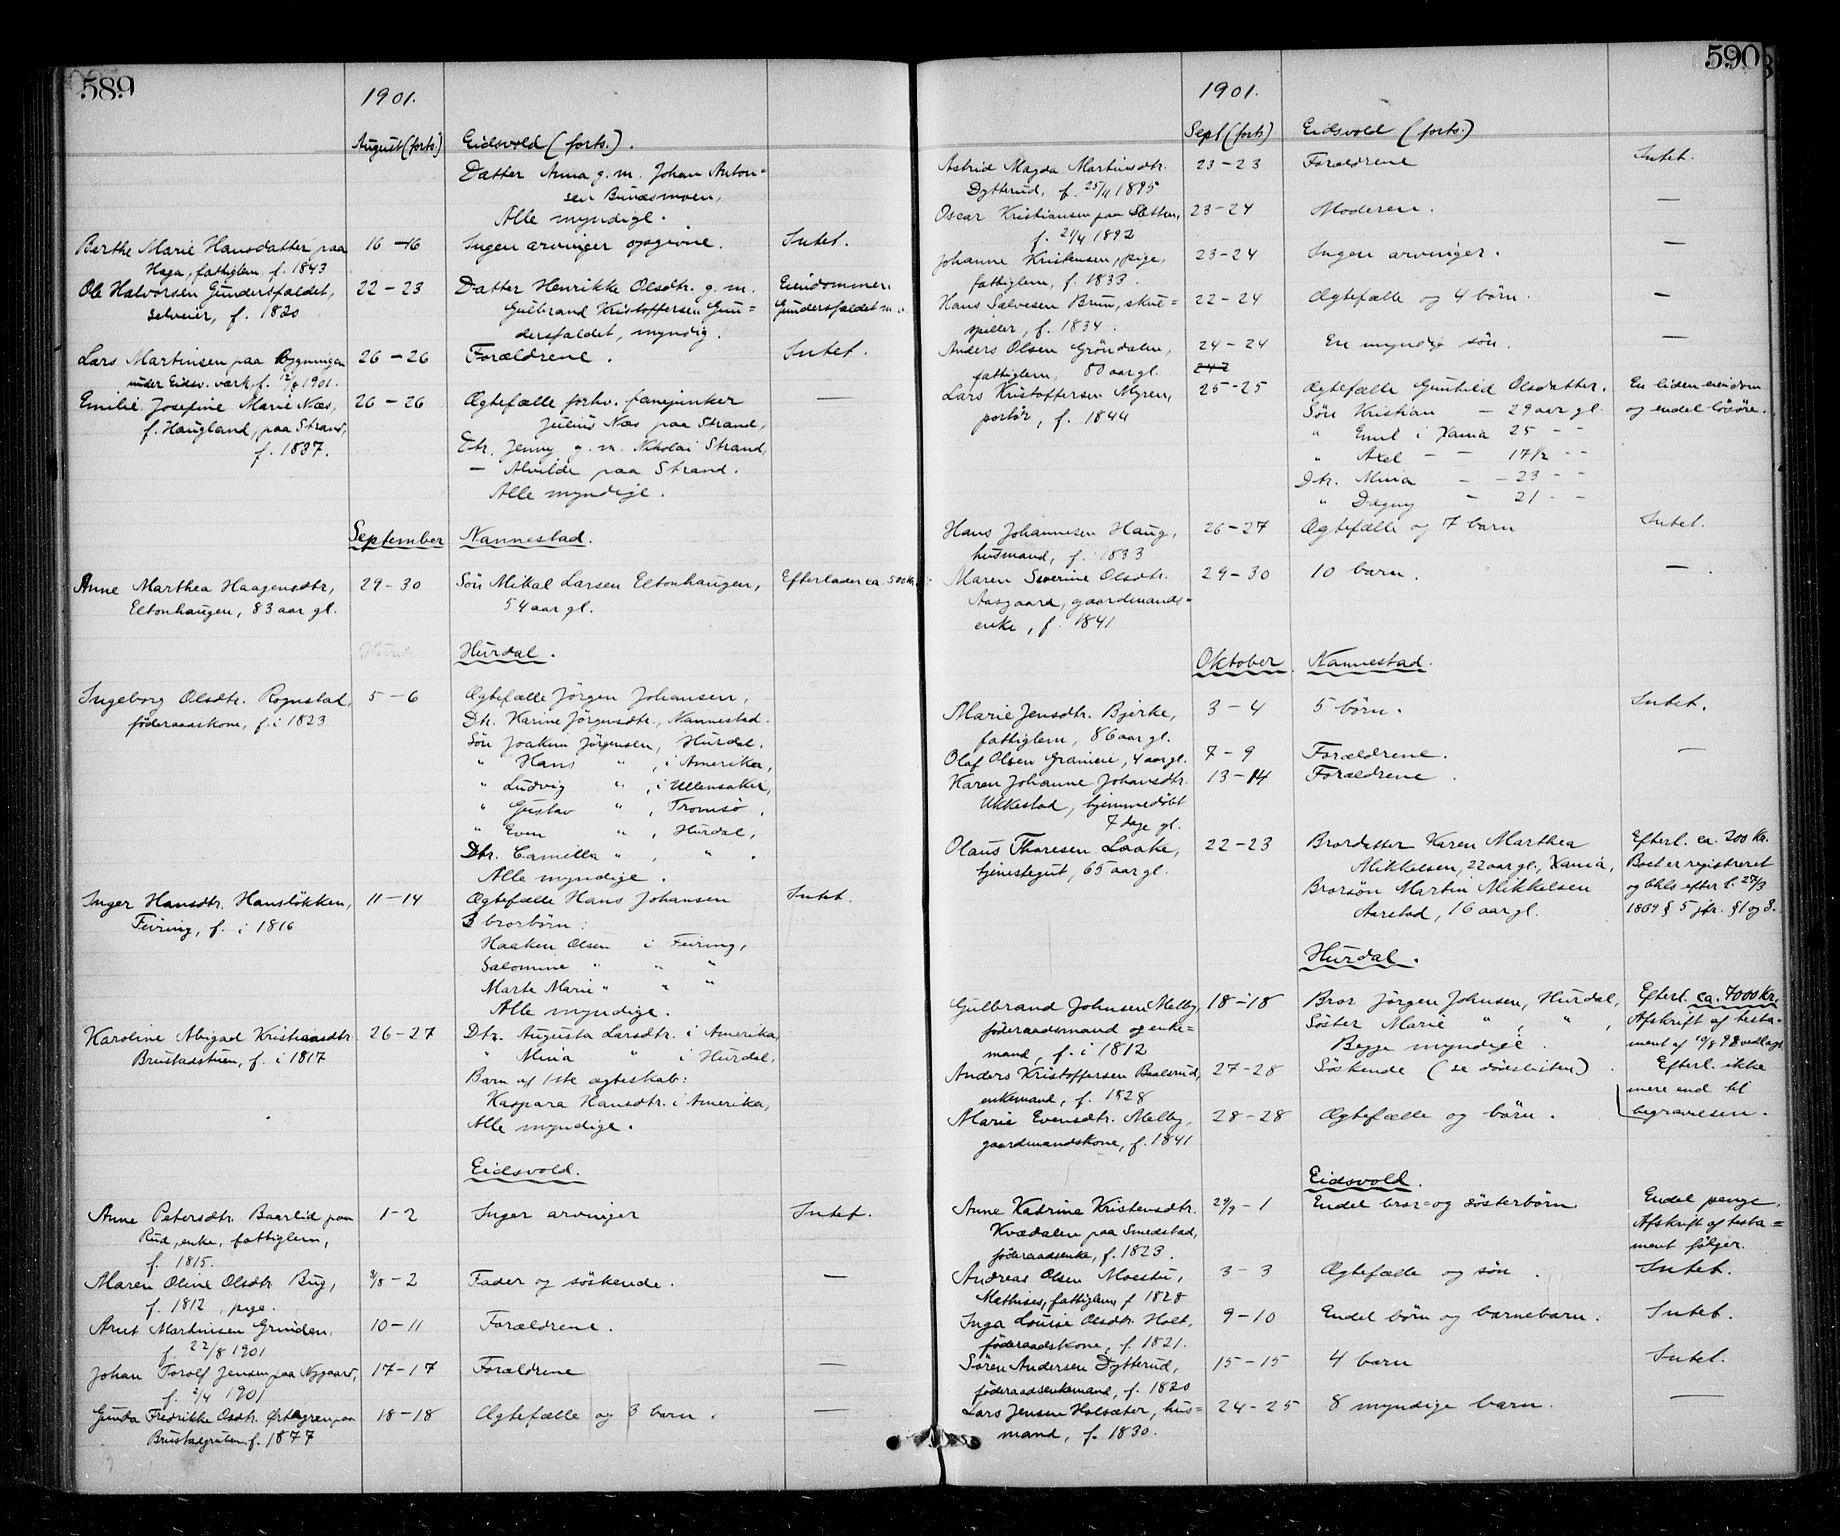 589
1901.
August (forts.) Eidsvold (forts.).
Datter Anna g. m. Johan Anton=
sen Bunæsmoen,
Alle myndige.
Berthe Marie Hansdatter paa 16 – 16 Ingen arvinger opgivne. Intet.
Haga, fattiglem, f. 1843
Ole Halvorsen Gundersfaldet, 22 – 23 Datter Henrikke Olsdtr. g. m. Eiendommen
selveier, f. 1820 Gulbrand Kristoffersen Gun= Gundersfaldet m.
dersfaldet, myndig.
Lars Martinsen paa Bygningen 26 – 26 Forældrene. Intet.
under Eidsv. værk, f. 12/8 1901.
Emilie Josefine Marie Næs, 26 – 26 Ægtefælle forhv. fanejunker —
f. Haugland, paa Strand, Julius Næs paa Strand,
f. 1837. Dtr. Jenny g. m. Nikolai Strand,
— Alvilde paa Strand.
Alle myndige.
September Nannestad.
Anne Marthea Haagensdtr, 29 – 30 Søn Mikal Larsen Eltonhaugen, Efterlader ca. 500 Kr.
Eltonhaugen, 83 aar gl. 54 aar gl.
Hurdal.
Ingeborg Olsdtr. Rognstad, 5 – 6 Ægtefælle Jørgen Johansen,
føderaadskone, f. i 1823 Dtr. Karine Jörgensdtr., Nannestad.
Søn Joakim Jörgensen, Hurdal.
" Hans " , i Amerika,
" Ludvig " , i Ullensaker,
" Gustav " , Tromsø,
" Even " , Hurdal,
Dtr. Camilla " , " .
Alle myndige.
Inger Hansdtr. Hansløkken, 11 – 14 Ægtefælle Hans Johansen Intet.
Feiring, f. i 1816 3 brorbørn:
Haaken Olsen i Feiring,
Salomine " " "
Marte Marie " " "
Alle myndige.
Karoline Abigael Kristiansdtr. 26 – 27 Dtr. Augusta Larsdtr. i Amerika,
Brustadstuen, f. i 1817 " Mina " i Hurdal,
Barn af 1ste ægteskab:
Kaspara Hansdtr. i Amerika,
Alle myndige.
Eidsvold.
Anne Petersdtr. Baarlid paa 1 – 2 Inger arvinger Intet.
Rud, enke, fattiglem,
f. 1815.
Maren Oline Olsdtr. Bug, 3/8 – 2 Fader og søskende. —
f. 1812, pige.
Arnt Martinsen Grinden, 10 – 11 Forældrene.
f. 22/8 1901
Johan Torolf Jensen paa Nygaard, 17 – 17 Forældrene —
f. 2/4 1901
Gunda Fredrikke Osdtr. Ørtegren paa 18 – 18 Ægtefælle og 3 barn. —
Brustadgruben, f. 1877
590
1901.
Sept (forts) Eidsvold (forts.)
Astrid Magda Martinsdtr. 23 – 23 Forældrene Intet.
Dytterud, f. 25/11 1895
Oscar Kristiansen paa Sletten, 23 – 24 Moderen. —
f. 21/4 1892
Johanne Kristensen, pige, 23 – 24 Ingen arvinger. —
fattiglem, f. 1833.
Hans Salvesen Brun, skue= 22 – 24 Ægtefælle og 4 børn. —
spiller, f. 1834.
Anders Olsen Grøndalen, 24 – 24 En myndig søn. —
fattiglem, 80 aar gl.
Lars Kristoffersen Myren, 25 – 25 Ægtefælle Gunhild Olsdatter. En liden eiendom
portör, f. 1844 Søn Kristian — 29 aar gl. og endel løsøre.
" Emil i Xania 25 - -
" Axel — — 17½ - -
Dtr. Mina — — 23 - -
" Dagny — 21 - -
Hans Johannesen Haug, 26 – 27 Ægtefælle og 7 barn Intet.
husmand, f. 1833
Maren Severine Olsdtr. 29 – 30 10 barn. —
Aasgaard, gaardmands=
enke, f. 1841
Oktober. Nannestad.
Marie Jensdtr. Bjerke, 3 – 4 5 børn. Intet.
fattiglem, 86 aar gl.
Olaf Olsen Gramere, 4 aar gl. 7 – 9 Forældrene. —
Karen Johanne Johansdtr. 13 – 14 Forældrene.
Ukkestad, hjemmedøbt
7 dage gl.
Olaus Thoresen Laake, 22 – 23 Brordatter Karen Marthea Efterl. ca. 200 Kr.
tjenestegut, 65 aar gl. Mikkelsen, 22 aar gl., Xania, Boet er registreret
Brorsøn Martin Mikkelsen og bhls efter l. 27/3
Aarstad, 16 aar gl. 1869 § 5 jfr. § 1 og 3.
Hurdal.
Gulbrand Johnsen Melby, 18 – 18 Bror Jörgen Johnsen, Hurdal, Efterl. ca. 7000 Kr.
føderaadsmand og enke= Søster Marie " , " , Afskrift af testa=
mand, f. i 1812 Begge myndige. ment af 10/8 98 vedlagt
Anders Kristoffersen Baalsrud, 27 – 28 Søskende (se dødslisten). Efterl. ikke
enkemand, f. 1828 mere end til
Marie Evensdtr. Melby, 28 – 28 Ægtefælle og børn. begravelsen.
gaardmandskone, f. 1841
Eidsvold.
Anne Katrine Kristensdtr. 29/9 – 1 Endel bror= og søsterbørn Endel penge.
Kvædalen paa Smedstad, Afskrift af testa=
føderaadsenke, f. 1823. ment følger.
Andreas Olsen Moestu, 3 – 3 Ægtefælle og søn. Intet.
Mathises, fattiglem, f 1828
Inga Louise Olsdtr. Holt, 9 – 10 Endel børn og barnebarn. Intet.
føderaadskone, f. 1821.
Søren Andersen Dytterud, 15 – 15 4 barn Intet.
føderaadsenkemand, f. 1820
Lars Jensen Holsæter, hus= 24 – 25 8 myndige barn. —
mand, f. 1830.